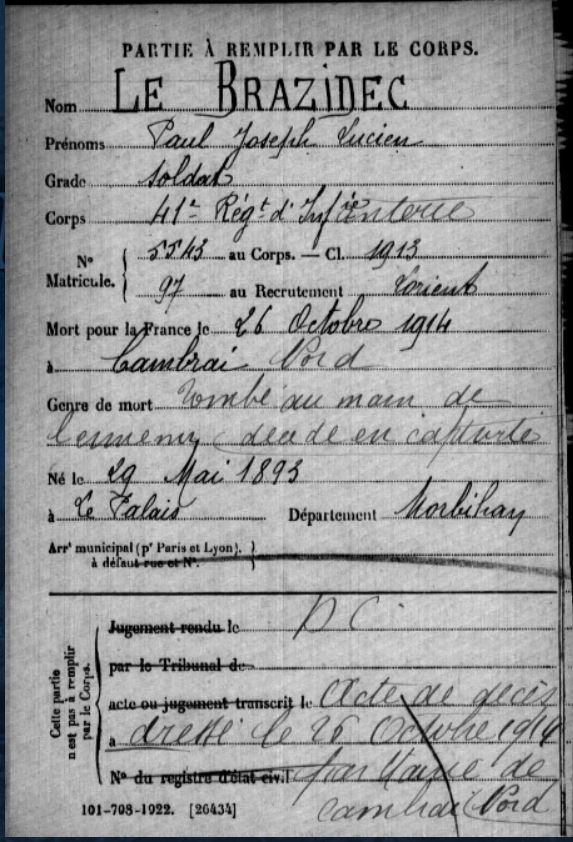 PARTIE À REMPLIR PAR LE CORPS.
Nom LE BRAZIDEC
Prénoms Paul Joseph Lucien
Grade soldat
Corps 41e Régt d'Infanterie
No Matricule. { 5543 au Corps. — Cl. 1913
97 au Recrutement Lorient
Mort pour la France le 26 Octobre 1914
à Cambrai Nord
Genre de mort Tombé au main de
l'ennemi décédé en captivité
Né le 29 Mai 1893
à Le Palais Département Morbihan
Arrt municipal (pr Paris et Lyon), }
à défaut rue et No.
Cette partie n'est pas à remplir par le Corps.
Jugement rendu le D C
par le Tribunal de
acte ou jugement transcrit le Acte de décès
à dressé le 26 Octobre 1914
No du registre d'état civil par Mairie de
Cambrai Nord
101-708-1922. [26434]